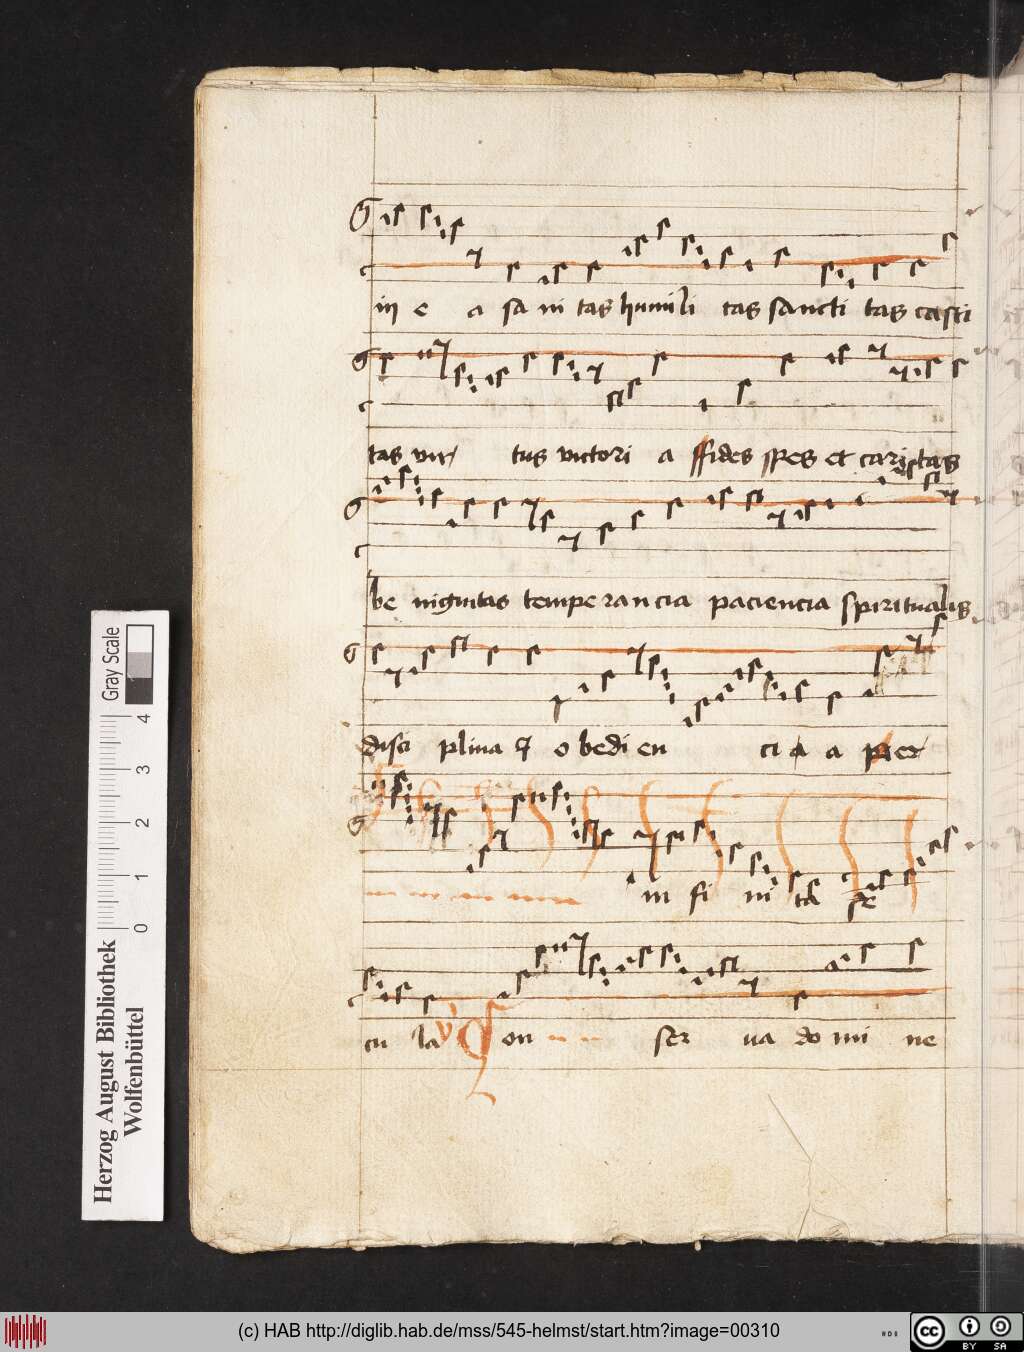 in e a sa ni tas humili tas sancti tas casti
tas vir tus victori a ffides spes et caristas
be nignitas tempe ran cia paciencia spiritualis
disci plina & o bedi en ci a a per
in fi ni ta se
cu la Con ser va do mi ne
Gray Scale
4 3 2 1 0
Herzog August Bibliothek
Wolfenbüttel
(c) HAB http://diglib.hab.de/mss/545-helmst/start.htm?image=00310
cc BY SA